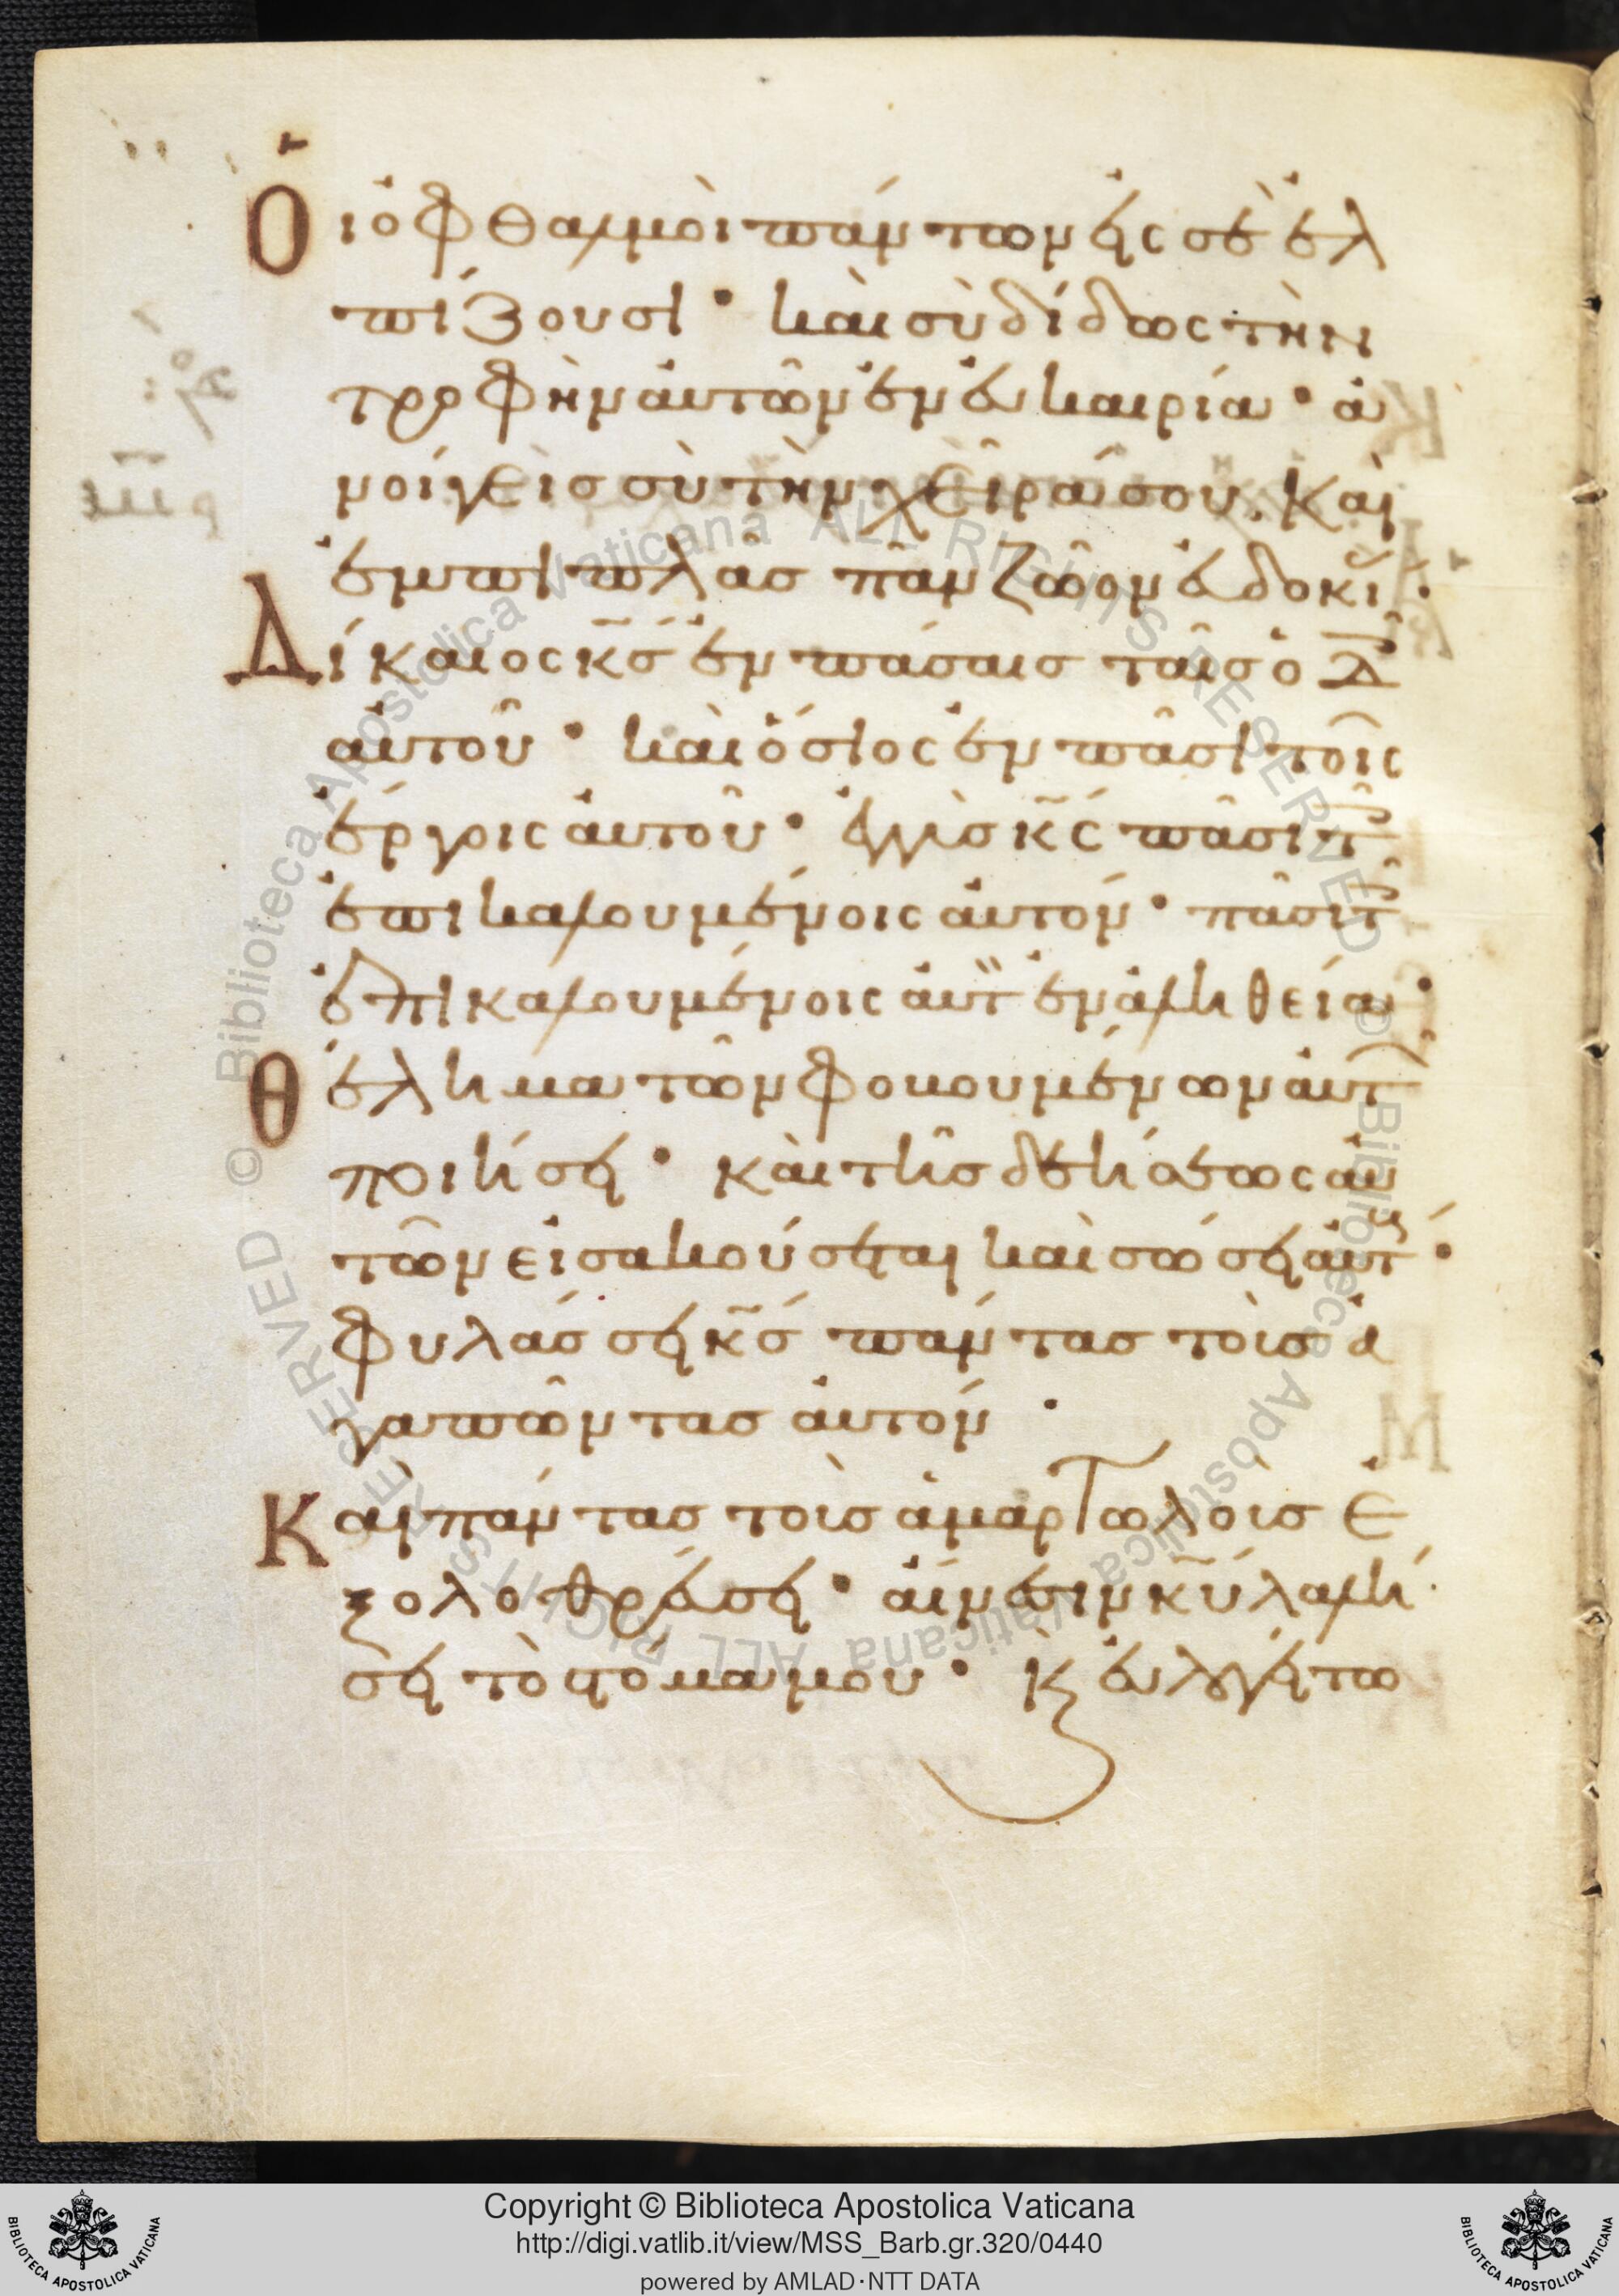 Οἱ ὀφθαλμοὶ πάντων εἰς σὲ ἐλ
πίζουσι · καὶ σὺ δίδως τὴν
τροφὴν αὐτῶν ἐν εὐκαιρία · ἀ
νοίγεις σὺ τὴν χεῖρά σου. Καὶ
ἐμπιπλᾶς πᾶν ζῶον εὐδοκί ·
Δίκαιος κς ἐν πάσαις ταῖς ὁδ
αὐτοῦ · καὶ ὅσιος ἐν πᾶσι τοῖς
ἔργοις αὐτοῦ · ἐγγὺς κς πᾶσι τ
ἐπικαλουμένοις αὐτόν · πᾶσι τ
ἐπικαλουμένοις αὐτ ἐν ἀληθεία ·
Θέλημα τῶν φοβουμένων αὐτ
ποιήσει · καὶ τῆς δεήσεως αὐ
τῶν εἰσακούσεται καὶ σώσει αὐτ ·
Φυλάσσει κς πάντας τοὺς ἀ
γαπῶντας αὐτόν ·
Καὶ πάντας τοὺς ἁμαρτωλοὺς ἐ
ξολοθρεύσει · αἴνεσιν κυ λαλή
σει τὸ στόμα μου · κ εὐλογείτω
Copyright © Biblioteca Apostolica Vaticana
http://digi.vatlib.it/view/MSS_Barb.gr.320/0440
powered by AMLAD·NTT DATA
BIBLIOTECA APOSTOLICA VATICANA
BIBLIOTECA APOSTOLICA VATICANA
© Biblioteca Apostolica Vaticana ALL RIGHTS RESERVED
© Biblioteca Apostolica Vaticana ALL RIGHTS RESERVED